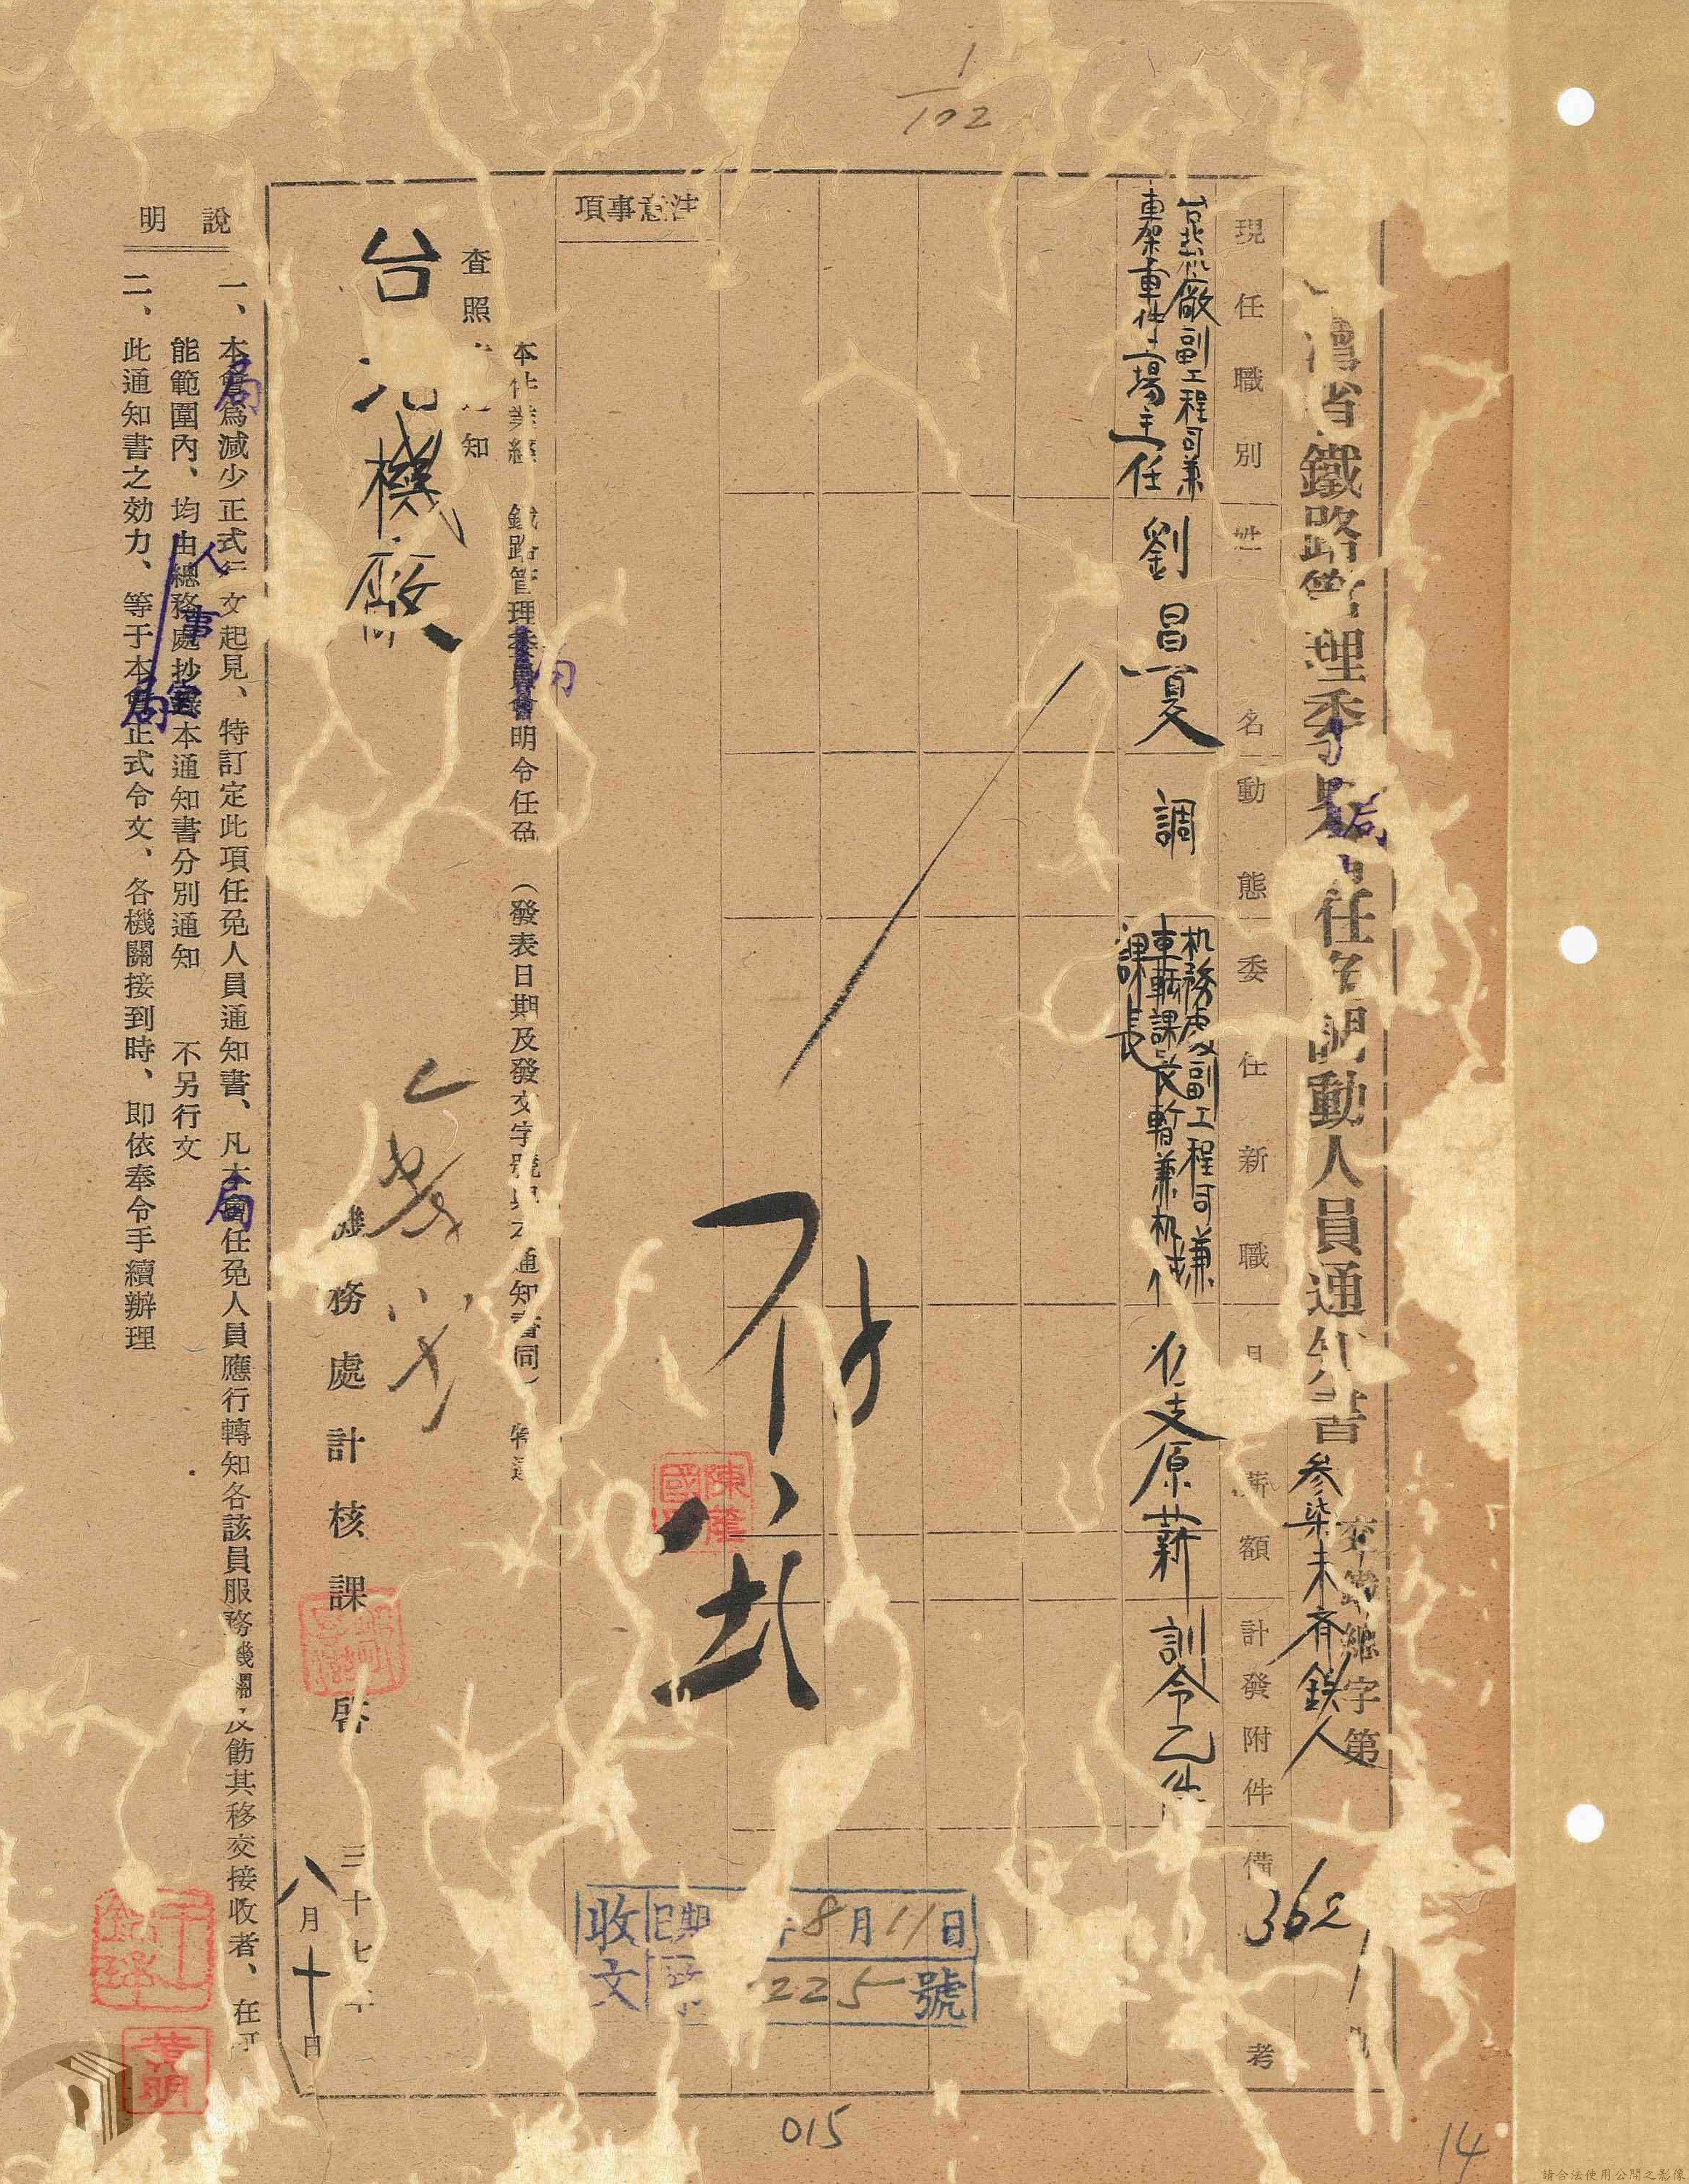 1/102
灣省鐵路管理委員
局
任免調動人員通知書
交鐵總字第
參柒未齊鉄人
362
現任職別
姓名
動態
委任新職
月薪額
計發附件
備考
台北機廠副工程司兼
車架車件場主任
劉昌夏
調
机務處副工程司兼
車輛課長暫兼机械
課長
仍支原薪
訓令乙件
注意事項
本件業經 鐵路管理委員會明令任免 (發表日期及發文字號與本通知書同) 特達
局
查照 知
台北機廠
機務處計核課啓
三十七年
八月十日
陳
國
收文
日期 年8月11日
225號
說明
一、本會為減少正式行文起見、特訂定此項任免人員通知書、凡本會任免人員應行轉知各該員服務機關及飭其移交接收者、在可
局
局
能範圍內、均由總務處抄錄本通知書分別通知 不另行文
人事室
二、此通知書之効力、等于本會正式令文、各機關接到時、即依奉令手續辦理
局
015
14
請合法使用公開之影像